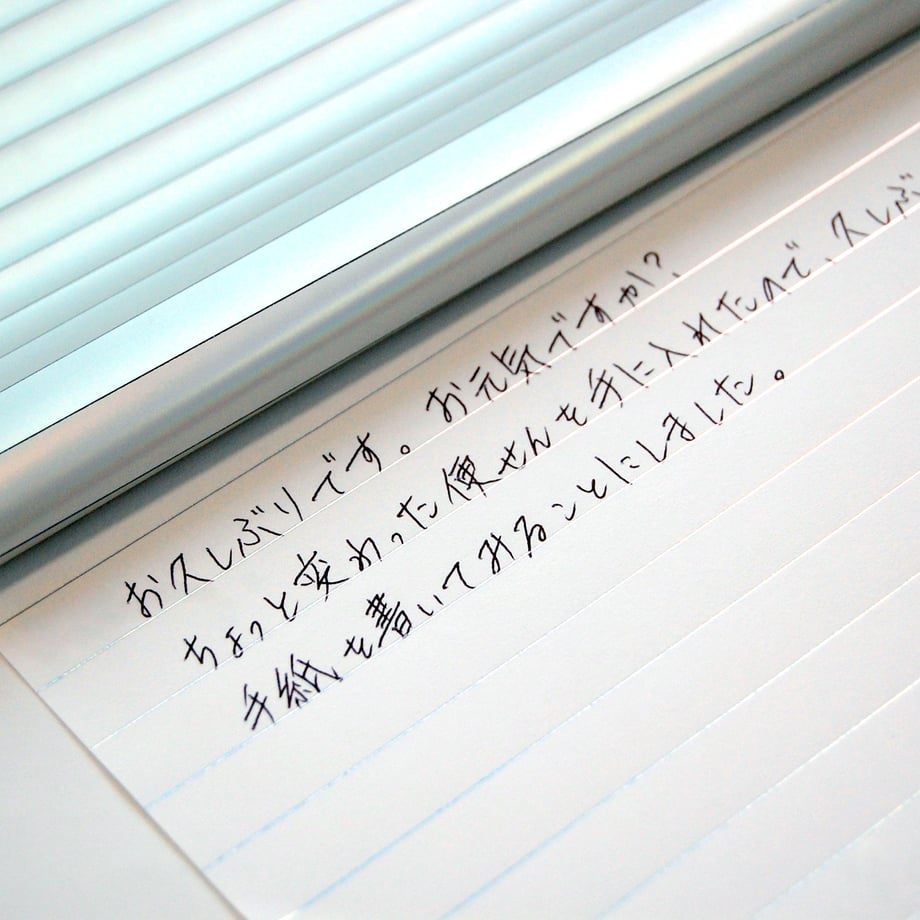 お久しぶりです。お元気ですか？
ちょっと変わった便せんを手に入れたので、久しぶ
手紙を書いてみることにしました。